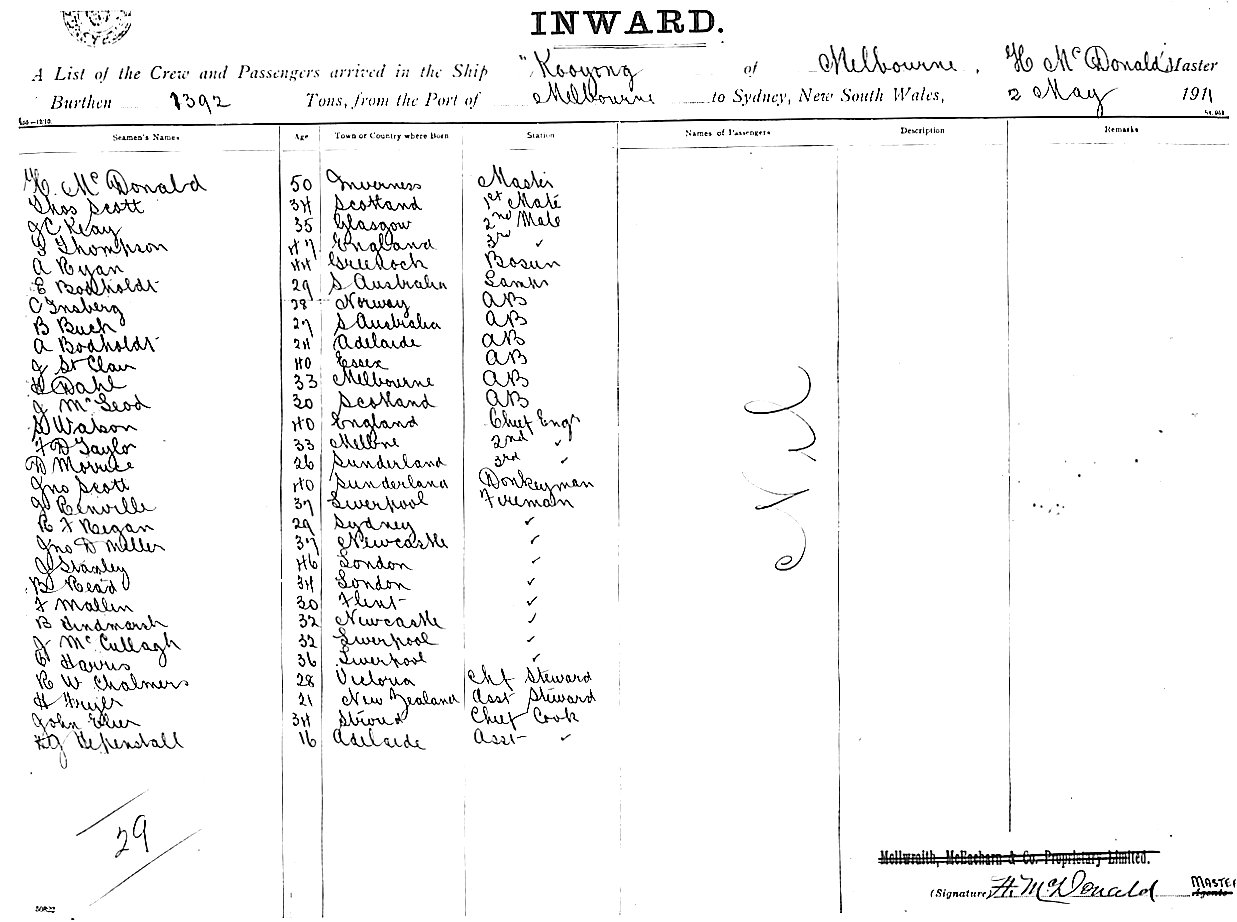 INWARD.
A List of the Crew and Passengers arrived in the Ship "Kooyong of Melbourne. H McDonald's Master
Burthen 1392 Tons, from the Port of Melbourne to Sydney, New South Wales, 2 May 1911
Seamen's Names Age Town or Country where Born Station Names of Passengers Description Remarks
H. McDonald 50 Inverness Master
Thos Scott 34 Scotland 1st Mate
J C Keay 35 Glasgow 2nd Mate
Thompson 47 England 3rd ✓
A Ryan 44 Greenock Bosun
E Bodholdt 29 S Australia Lamps
C Insberg 38 Norway AB
B Buch 27 S Australia AB
A Bodholdt 24 Adelaide AB
J St Clair 40 Essex AB
H Dahl 33 Melbourne AB
J McLeod 30 Scotland AB
Watson 40 England Chief Engr
F D Taylor 33 Melbne 2nd ✓
D Morrice 26 Sunderland 3rd ✓
Jno Scott 40 Sunderland Donkeyman
J Renville 37 Liverpool Fireman
R F Regan 29 Sydney ✓
Jno D Miller 37 Newcastle ✓
J Stanley 46 London ✓
B Read 34 London ✓
F Mallin 30 Flint ✓
B Hindmarsh 32 Newcastle ✓
J McCullagh 32 Liverpool ✓
Harris 36 Liverpool ✓
R W Chalmers 28 Victoria Chf Steward
H Fryer 21 New Zealand Asst Steward
John Elier 34 Stroud Chief Cook
Hepenstall 16 Adelaide Asst ✓
Nil
29
McIlwraith, McEacharn & Co. Proprietary Limited.
(Signature) H. McDonald MASTER
Agents